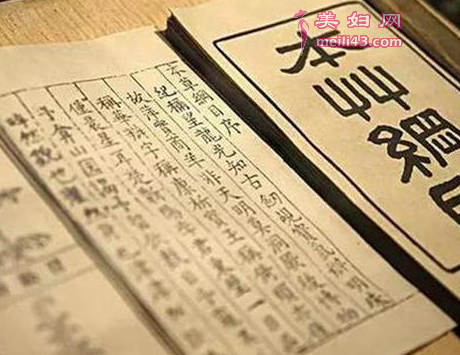 美妇网
meili43.com
本草綱目
本草綱目序
紀稱望龍光知古劍覘寶氣辨明珠
故萍實商羊非天明莫洞厥後博物
稱華辯字稱康析寶玉稱倚頓亦
僅晨星耳楚蘄陽李君東璧一日
予弇山園謁予留飲數日予
睟然貌也癯然